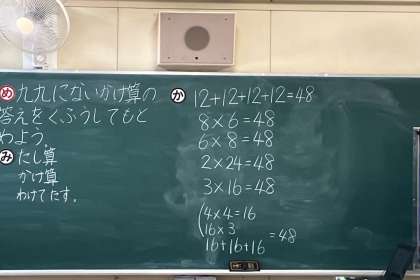 め 九九にないかけ算の
答えをくふうしてもと
めよう
み たし算
かけ算
わけてたす。
か 12+12+12+12=48
8×6=48
6×8=48
2×24=48
3×16=48
4×4=16
16×3
16+16+16
=48